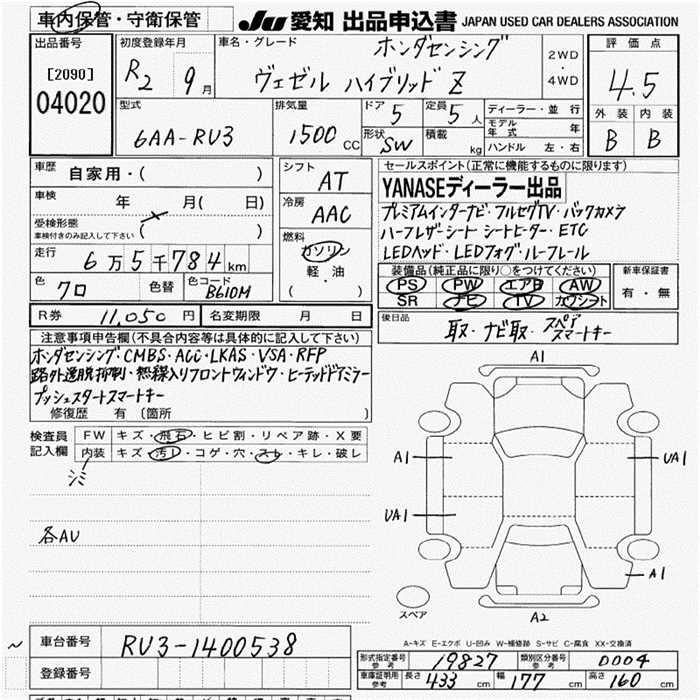 車内保管・守衛保管
JU 愛知 出品申込書 JAPAN USED CAR DEALERS ASSOCIATION
出品番号
[2090]
04020
初度登録年月
R2 9月
車名・グレード
ホンダセンシング
ヴェゼル ハイブリッド Z
2WD
・
4WD
評価点
4.5
外装 内装
B B
型式
6AA-RU3
排気量
1500 CC
ドア 5
定員 5人
形状 SW
積載 kg
ディーラー・並行
モデル年式 年
ハンドル 左・右
車歴
自家用・( )
車検
年 月( 日)
受検形態
車検付きのみ記入して下さい ( )
走行
6万5千784km
色 クロ
色替
色コード
B610M
シフト
AT
冷房
AAC
燃料
ガソリン
軽・油
( ・ )
セールスポイント(正常に機能するものに限ります)
YANASEディーラー出品
プレミアムインターナビ・フルセグTV・バックカメラ
ハーフレザーシート シートヒーター・ETC
LEDヘッド・LEDフォグ・ルーフレール
装備品(純正品に限り○をつけてください)
PS PW エアB AW
SR ナビ TV カワシート
新車保証書
有・無
R券 11,050 円
名変期限 月 日
後日品
取・ナビ取・スペア
スマートキー
注意事項申告欄(不具合内容等は具体的に記入して下さい)
ホンダセンシング・CMBS・ACC・LKAS・VSA・RFP
路外逸脱抑制・熱線入りフロントウィンドウ・ヒーテッドドアミラー
プッシュスタートスマートキー
修復歴 有 〔箇所 〕
検査員
記入欄
FW キズ・飛石・ヒビ割・リペア跡・X要
内装 キズ・汚レ・コゲ・穴・スレ・キレ・破レ
各AU
A1
A1
UA1
UA1
A1
スペア
A2
A-キズ E-エクボ U-凹み W-補修跡 S-サビ C-腐食 XX-交換済
車台番号 RU3-1400538
登録番号
形式指定番号
参考
19827
類別区分番号
参考
0004
車庫証明用
参考
長さ 433 cm 幅 177 cm 高さ 160 cm